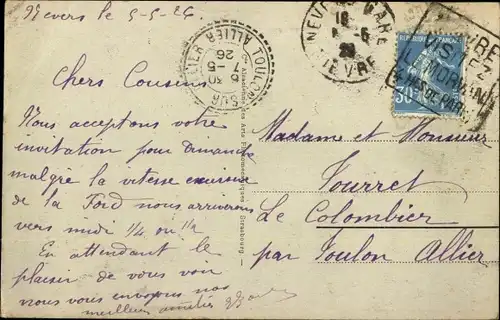 Nevers le 5-5-26
Chers Cousins
Nous acceptons votre
invitation pour Dimanche
malgré la vitesse
de la Ford nous arriverons
vers midi 1/4 ou 1/2
En attendant le
plaisir de vous voir
nous vous envoyons nos
meilleures amitiés
TOULON SUR ALLIER
7-5
26
NEVERS GARE
NIEVRE
30
Madame et Monsieur
Tourret
Le Colombier
par Toulon Allier
Cie Alsacienne des Arts Photomécaniques Strasbourg